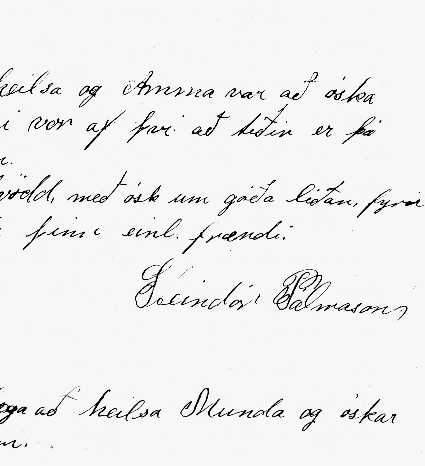 heilsa og Amma var að óska
i von af því að tíðin er þá
n.
vödd, með ósk um góða líðan, fyrir
þinn einl. frændi.
Steindór Pálmason
ega að heilsa Munda og óskar
m.